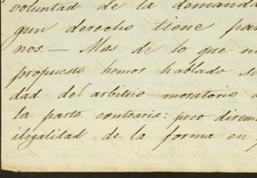 voluntad de la demanda
gun derecho tiene par
nos — Mas de lo que n
propuesto hemos hablado so
dad del arbitrio moratorio
la parte contraria: poco direm
ilegalidad de la forma en